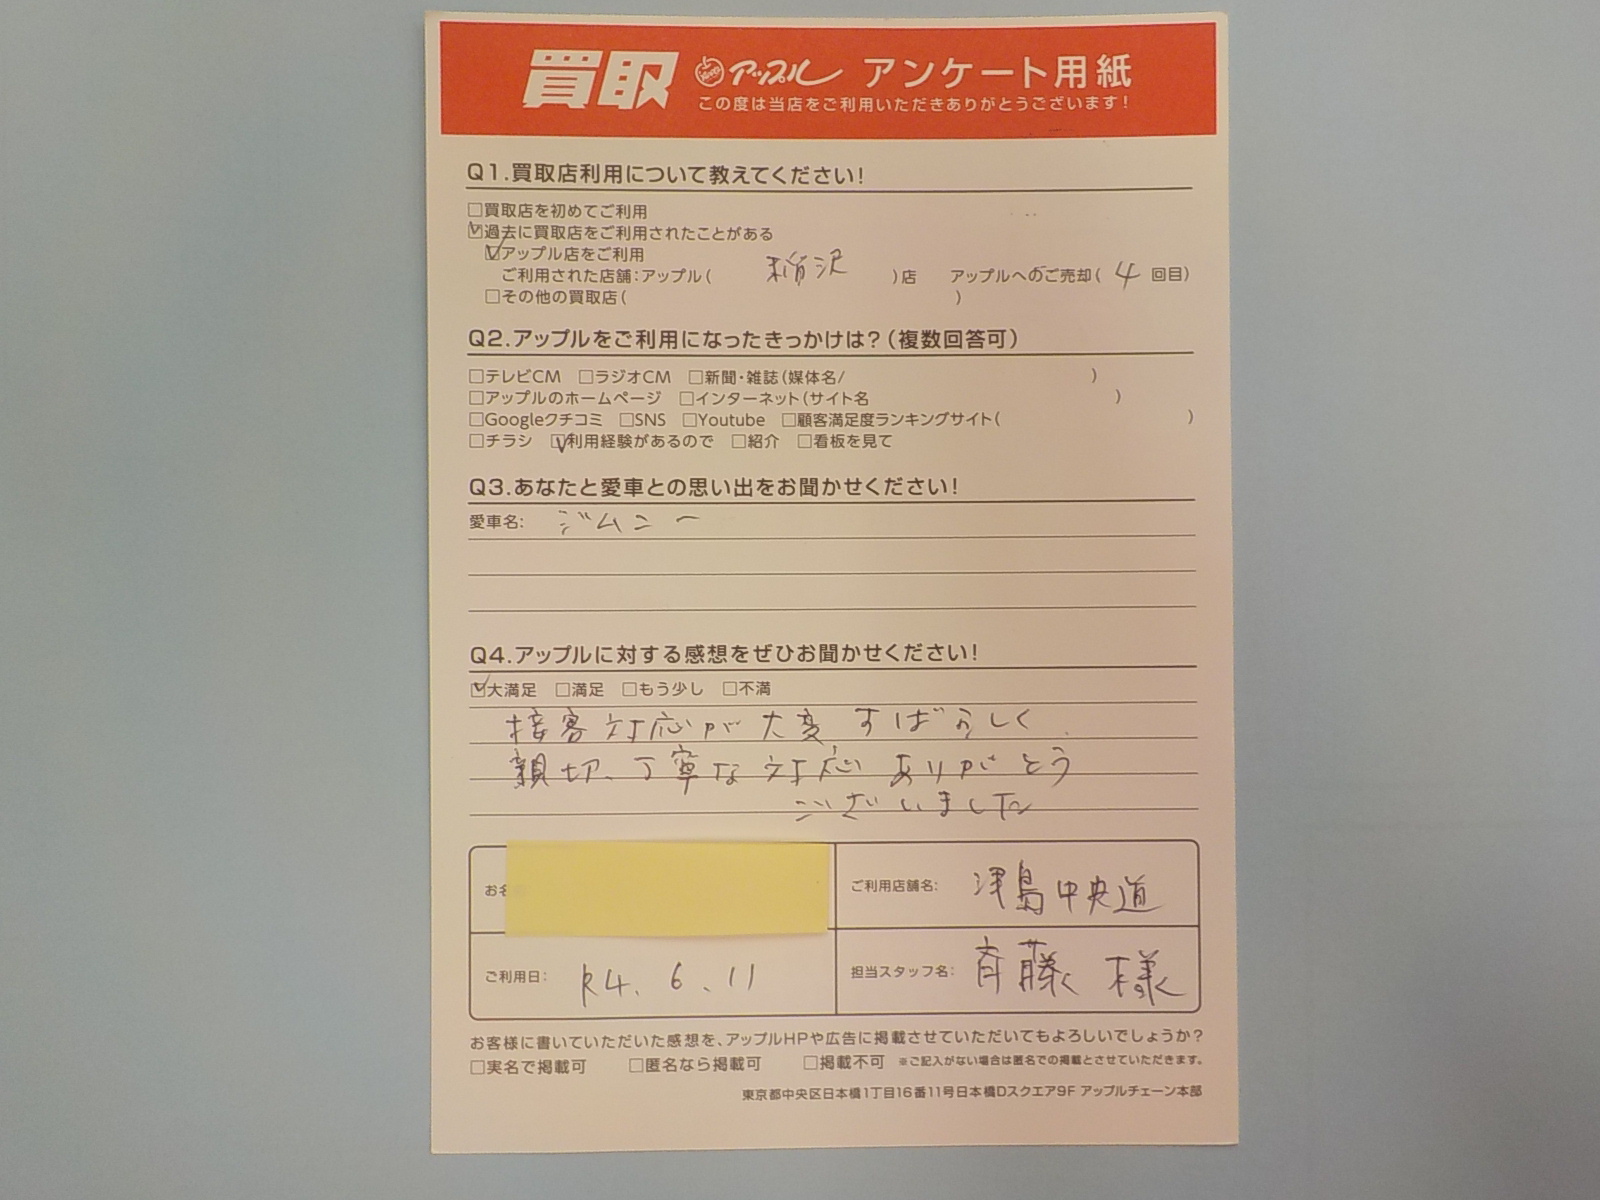 買取 アップル アンケート用紙
この度は当店をご利用いただきありがとうございます!
Q1.買取店利用について教えてください!
□買取店を初めてご利用
☑過去に買取店をご利用されたことがある
☑アップル店をご利用
ご利用された店舗:アップル( 稲沢 )店 アップルへのご売却( 4 回目)
□その他の買取店( )
Q2.アップルをご利用になったきっかけは?(複数回答可)
□テレビCM □ラジオCM □新聞・雑誌(媒体名/ )
□アップルのホームページ □インターネット(サイト名 )
□Googleクチコミ □SNS □Youtube □顧客満足度ランキングサイト( )
□チラシ ☑利用経験があるので □紹介 □看板を見て
Q3.あなたと愛車との思い出をお聞かせください!
愛車名: ジムニー
Q4.アップルに対する感想をぜひお聞かせください!
☑大満足 □満足 □もう少し □不満
接客対応が大変すばらしく
親切、丁寧な対応ありがとう
ございました
お名 ご利用店舗名: 津島中央道
ご利用日: R4.6.11 担当スタッフ名: 斉藤様
お客様に書いていただいた感想を、アップルHPや広告に掲載させていただいてもよろしいでしょうか?
□実名で掲載可 □匿名なら掲載可 □掲載不可 ※ご記入がない場合は匿名での掲載とさせていただきます。
東京都中央区日本橋1丁目16番11号日本橋Dスクエア9F アップルチェーン本部